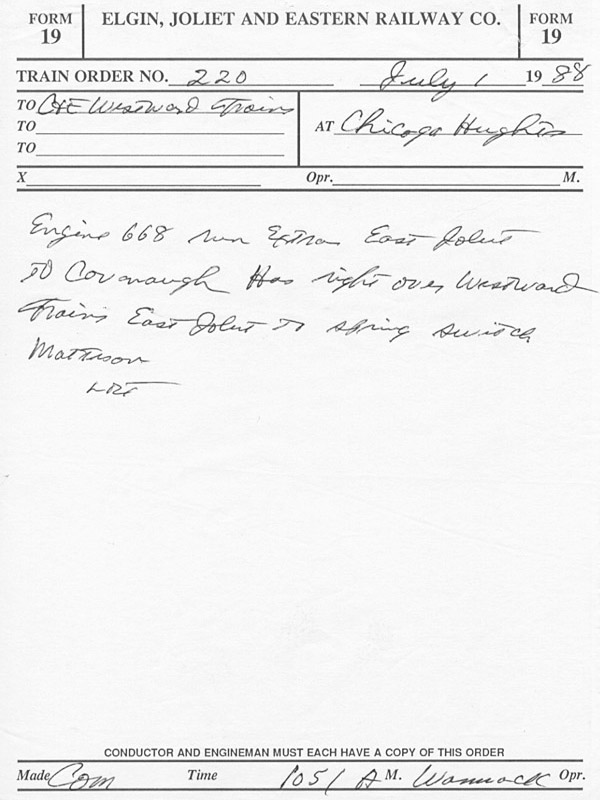 FORM 19 ELGIN, JOLIET AND EASTERN RAILWAY CO. FORM 19
TRAIN ORDER NO. 220 July 1 1988
TO C&E Westward Trains
TO
TO
AT Chicago Heights
X Opr. M.
Engine 668 run Extra East Joliet
to Cavanaugh Has right over Westward
Trains East Joliet to spring switch
Matteson
LRT
CONDUCTOR AND ENGINEMAN MUST EACH HAVE A COPY OF THIS ORDER
Made Com Time 1051 A M. Wammack Opr.